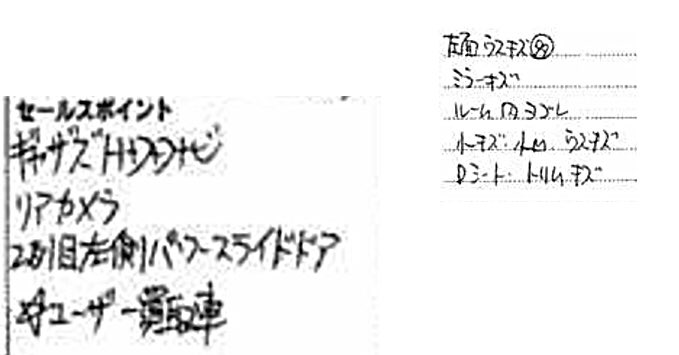 セールスポイント
ギャザズメモリナビ
リアカメラ
2列目左側パワースライドドア
ユーザー買取車
左面ウスキズ
ミラーキズ
ルーム内ヨゴレ
小キズ・ウスキズ
Dシート・トリムキズ